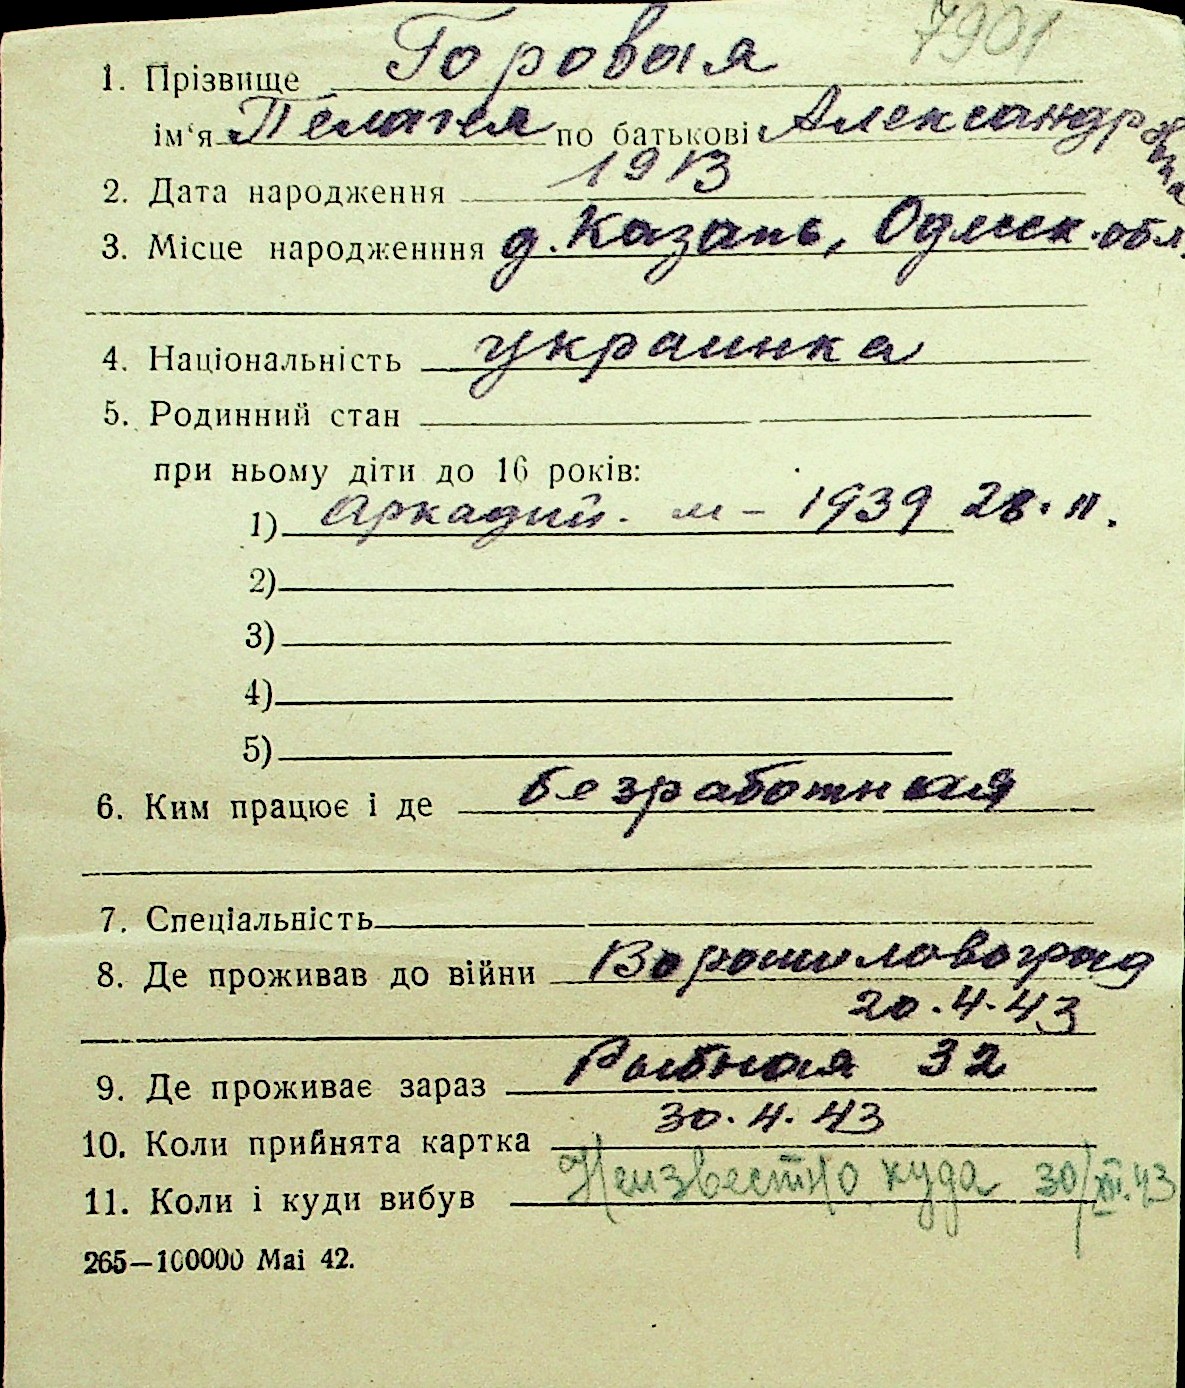 7901
1. Прізвище Горовая
ім‘я Пелагея по батькові Александровна
2. Дата народження 1913
3. Місце народженння д. Казань, Одесск. обл.
4. Національність украинка
5. Родинний стан
при ньому діти до 16 років:
1) Аркадий. м – 1939 28.
2)
3)
4)
5)
6. Ким працює і де безработная
7. Спеціальність
8. Де проживав до війни Ворошиловоград
20.4.43
9. Де проживає зараз Рыбная 32
10. Коли прийнята картка 30.4.43
11. Коли і куди вибув Неизвестно куда 30/XII.43
265—100000 Mai 42.